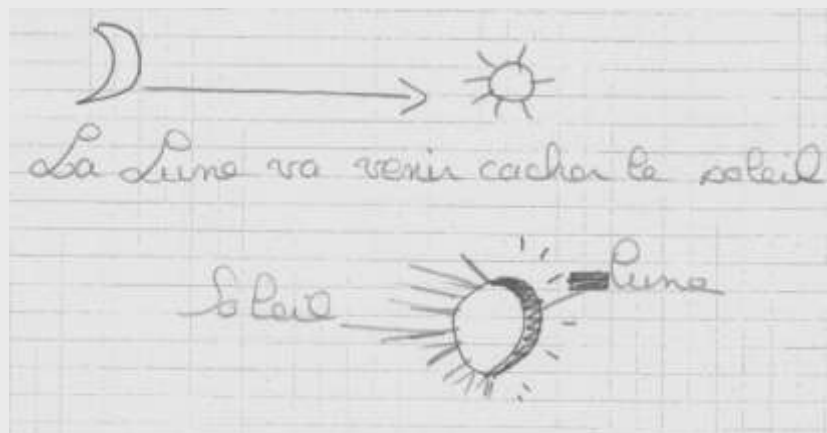 La Lune va venir cacher le soleil
Soleil
lune